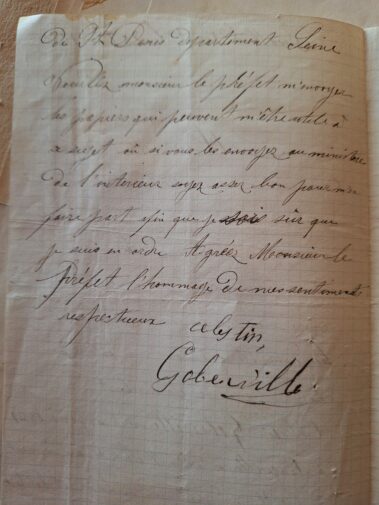 de St Denis département Seine
Veuillez monsieur le préfet m'envoyez
les papiers qui peuvent m'être utile à
ce sujet où si vous les envoyez au ministère
de l'interieur soyez assez bon pour me
faire part afin que je sois sûr que
je suis en ordre Agréez Monsieur le
Préfet l'hommage de mes sentiments
respectueux celestin
Goberville